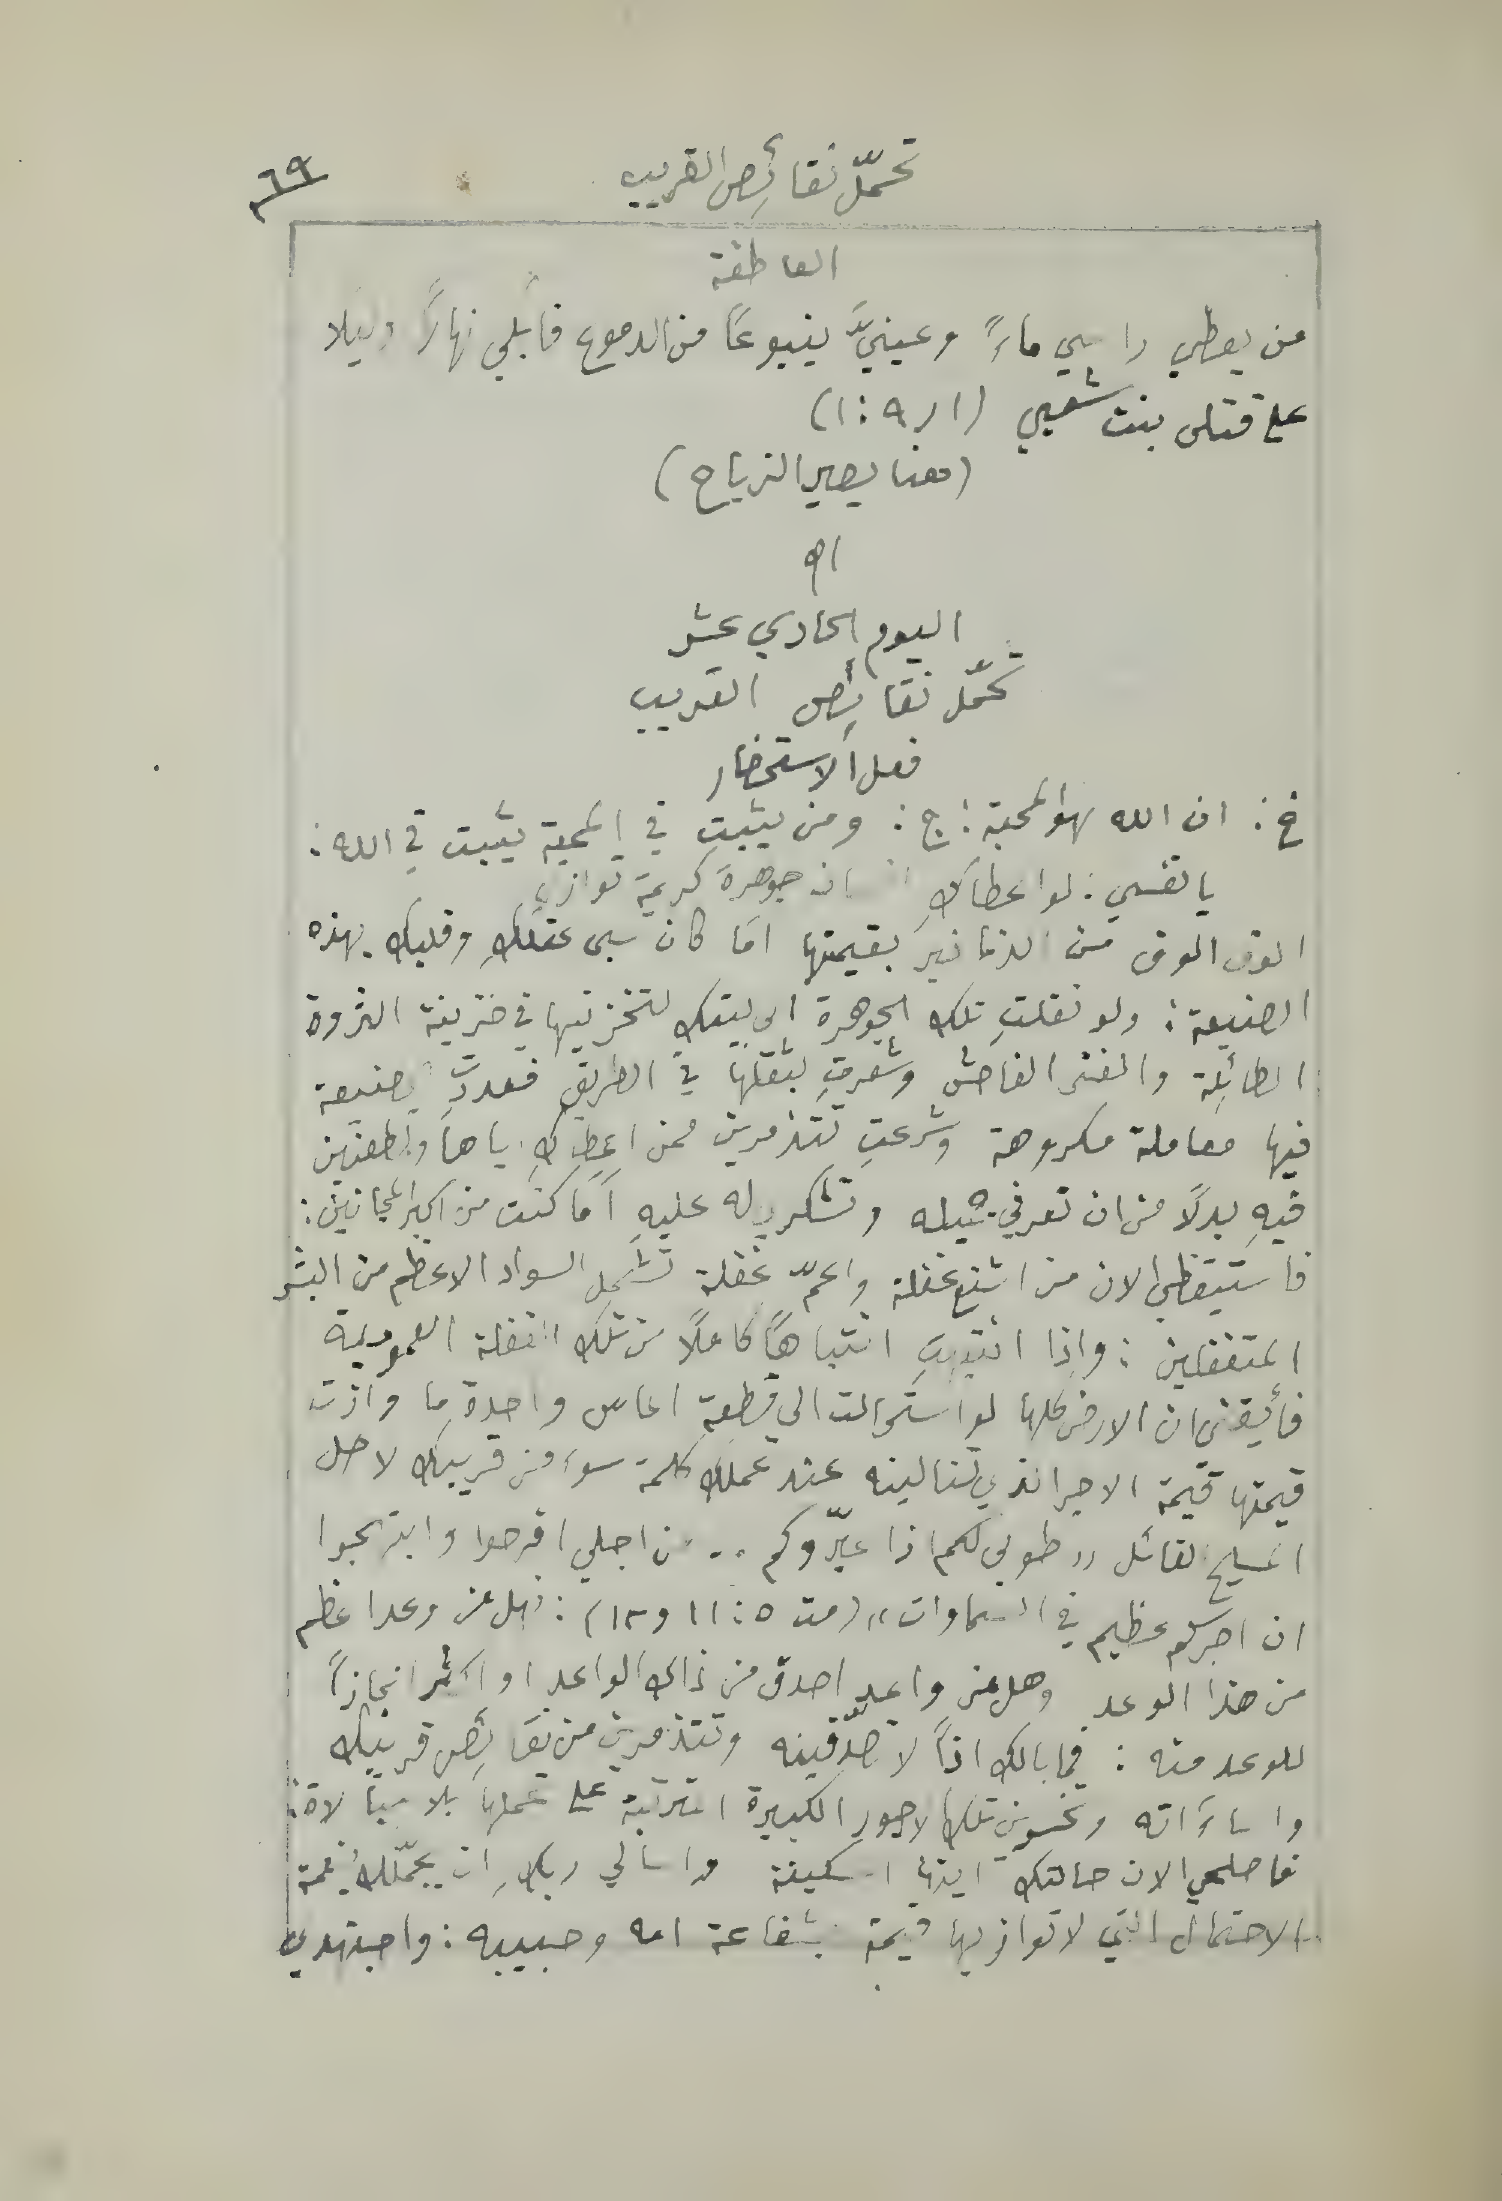 تحمّل نقائِص القريب
٦٩
العاطفة
من يعطي راسي ماءً وعينيَّ ينبوعًا من الدموع فابكي نهارًا وليلا
على قتلى بنت شعبي (ار ٩: ١)
(هنا يصير الزياح)
اليوم الحادي عشر
تحمّل نقائِص القريب
فعل الاستحضار
خ: ان الله هو المحبة: ج: ومن يثبت في المحبة يثبت في الله:
يا نفسي: لو اعطاكِ جوهرة كريمة توازي
الوف الوف من الدنانير بقيمتها اما كان سبى عقلكِ وقلبك بهذه
الصنيعة: ولو نقلتِ تلك الجوهرة الى بيتك لتخزنيها في خزينة الثروة
الطائِلة والغنى الفاحش وشعرتِ بثقلها في الطريق فعددتِ الصنيعة
فيها معاملة مكروهة وشرعتِ تتذمرين ممن اعطاكِ اياها وتطعنين
فيهِ بدلًا من ان تعرفي جميله وتشكريه له عليهِ أما كنت من اكبر المجانين:
فاستيقظي الان من اشنع غفلة واعمّ غفلة تشمل السواد الاعظم من البشر
المتغفلين: واذا انتبهتِ انتباهًا كاملًا من تلك الغفلة العمومية
فأيقني ان الارض كلها لو استحالت الى قطعة الماس واحدة ما وازت
قيمتها قيمة الاجر الذي تنالينه عند تحملك كلمة سوء من قريبك لاجل
المسيح القائل «طوبى لكم اذا عيّروكم ... من اجلي افرحوا وابتهجوا
ان اجركم عظيم في السماوات» (مت ٥: ١١ و١٢): فهل من وعد اعظم
من هذا الوعد وهل من واعدٍ اصدق من ذاك الواعد او اكثر انجازاً
للوعد منه: فما بالك اذاً لا تصدّقينه وتتذمرين من نقائِص قريبك
واساءَاته وتخسرين تلك الاجور الكبيرة المترتبة على تحملها بلا مبالاة:
فاصلحي الان حالتك ايتها المسكينة واسالي ربكِ ان يجمّلك بنعمة
الاحتمال التي لا توازيها قيمة بشفاعة امه وحبيبه: واجتهدي